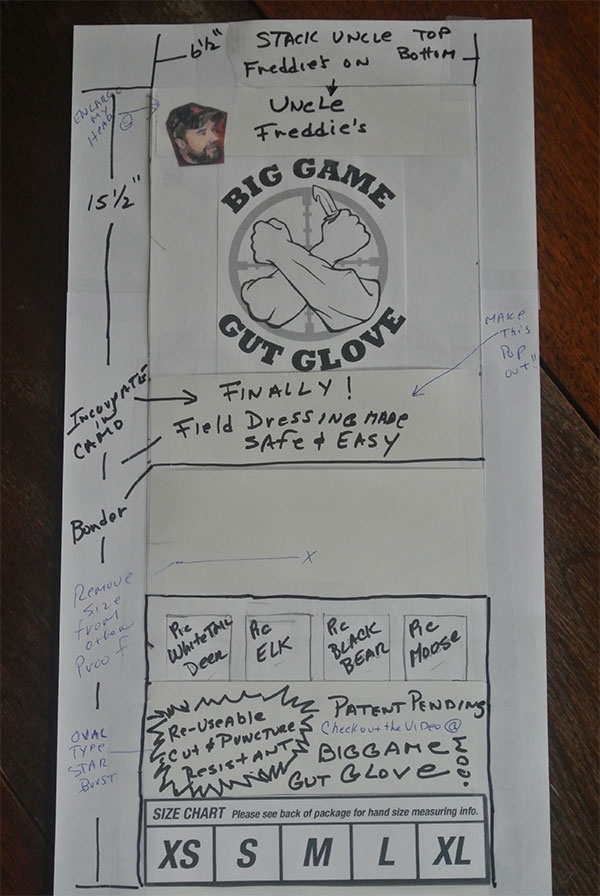 6½"
STACK UNCLE TOP
Freddie's ON BOTTOM
ENLARGE
MY
HEAD
UNCLE
Freddie's
15½"
BIG GAME
GUT GLOVE
MAKE
THIS
POP
OUT"
FINALLY!
Field DRESSING MADE
SAFE & EASY
IN
CAMO
Border
Remove
Size
from
other
Proof
X
Pic
WhiteTAIL
Deer
Pic
ELK
Pic
BLACK
BEAR
Pic
MOOSE
OVAL
TYPE
STAR
BURST
Re-Useable
Cut & Puncture
Resistant
PATENT PENDING
Check out the Video @
BIGGAME
GUT GLOVE
.COM
SIZE CHART Please see back of package for hand size measuring info.
XS S M L XL